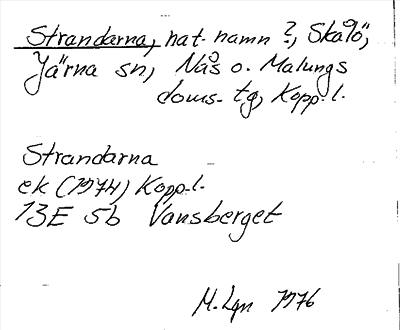 Strandarna, nat. namn ?, Skålö,
Järna sn, Nås o. Malungs
doms. tg, Kopp. l.
Strandarna
ek (1974) Kopp. l.
13E 5b Vansberget
M. Lgn 1976